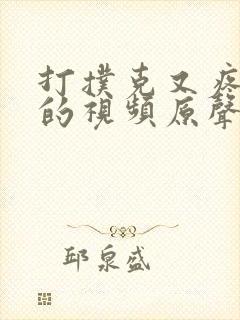 打撲克又疼
的視頻原聲
邱泉盛